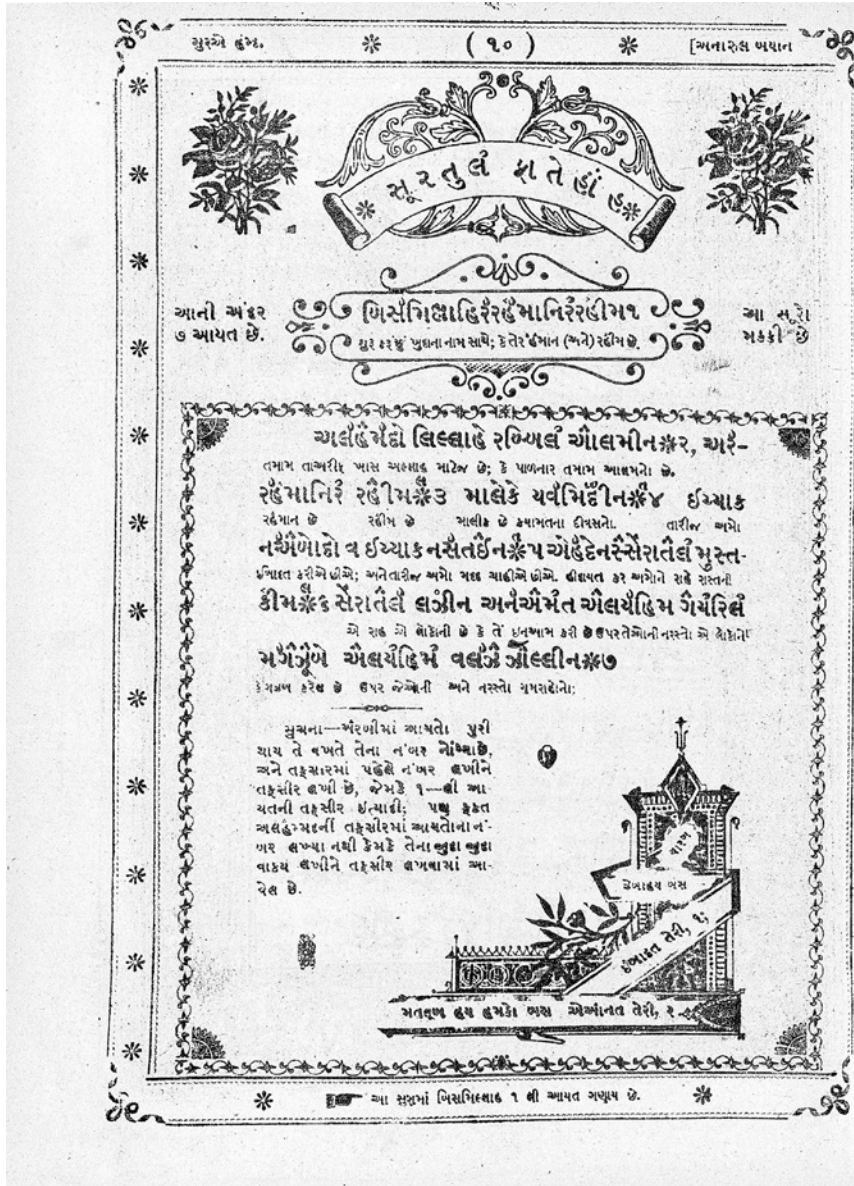 સુરએ હમ્દ.
( ૧૦ )
[અનારુલ બયાન
સૂરતુલં ફાતેહાંહ
આની અંદર
૭ આયત છે.
બિસૈમિલ્લાહિરૈરહૈમાનિરૈરહીમ૧
શુરૂ કરૂં છું ખુદાના નામ સાથે; કે તે રહમાન (અને) રહીમ છે.
આ સૂરો
મક્કી છે
અલહૈમૈદો લિલ્લાહે રબ્બિલં આૈલમીન૨, અરૈ-
તમામ તાઅરીફ ખાસ અલ્લાહ માટેજ છે; કે પાળનાર તમામ આલમનો છે.
રહૈંમાનિરૈં રહૈીમ૩ માલેકે યવૈમિદ્દીન૪ ઈય્યાક
રહમાન છે રહીમ છે માલીક છે કયામતના દીવસનો. તારીજ અમો
નઅૈબોદો વ ઈય્યાક નસૈતઈન૫ એહૈદેનસૈસેરાતૈલં મુસ્ત-
ઈબાદત કરીએ છીએ; અને તારીજ અમો મદદ ચાહીએ છીએ. હીદાયત કર અમોને રાહે રાસ્તની
કીમ૬ સેરાતૈલૈ લઝીન અનૈઅૈમંત અૈલયૈહિમ ગૈયૈરિલં
એ રાહ એ લોકોની છે કે તેં ઇનઆમ કરી છે ઉપર તેઓની નસ્તો એ લોકોને
મગૈઝૂબે અૈલયૈહિમં વલઝૈ ઝૉલ્લીન૭
કે ગઝબ કરેલ છે ઉપર જેઓની અને નસ્તો ગુમરાહોને;
સુચના—અરબીમાં આયતો પુરી
થાય તે વખતે તેના નંબર નોંખ્યા છે.
અને તફસીરમાં પહેલે નંબર લખીને
તફસીર લખી છે, જેમકે ૧—લી આ-
યતની તફસીર ઇત્યાદી; પણ ફકત
અલહમ્મદની તફસીરમાં આયતોના નં-
બર લખ્યા નથી કેમકે તેના જુદા જુદા
વાક્ય લખીને તફસીર લખવામાં આ-
વેલ છે.
યારબ
હયબસ
ઇબાદત તેરી, ૧;
મતલૂબ હય હમકો બસ એઆનત તેરી, ૨
આ સૂરામાં બિસમિલ્લાહ ૧ લી આયત ગણાય છે.